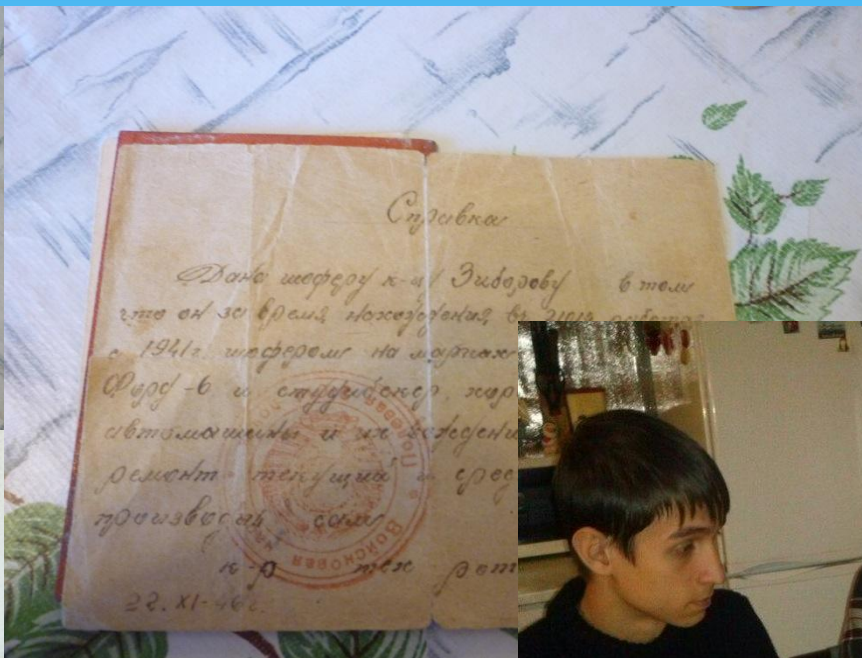 Справка
Дана шоферу к-ц Зиборову в том
что он за время нахождения в
с 1941г. шофером на марках
Форд-6 и студебекер, хар
автомашины и их вождени
ремонт текущий и сред
производил сам
к-р тех рот
22.XI-46г.
Войсковая
Полевая по